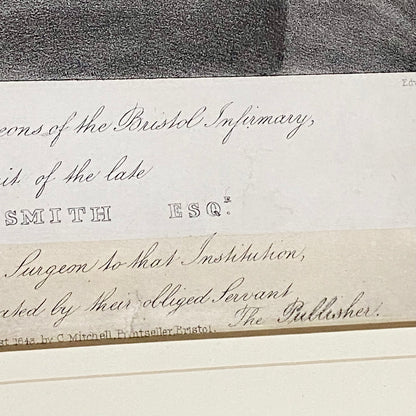 Edw
eons of the Bristol Infirmary,
it of the late
SMITH ESQR.
Surgeon to that Institution,
ated by their obliged Servant
The Publisher.
st 1843, by C. Mitchell, Printseller, Bristol.